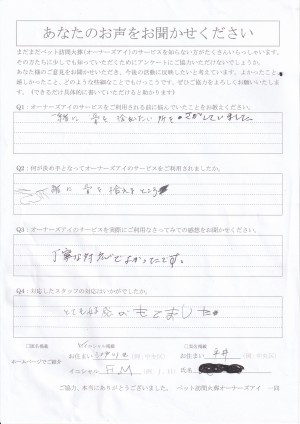 あなたのお声をお聞かせください
まだまだペット訪問火葬(オーナーズアイ)のサービスを知らない方がたくさんいらっしゃいます。
その方たちに少しでも知っていただくためにアンケートにご協力いただけないでしょうか。
あなた様のご意見をお聞かせいただき、今後の活動に反映したいと考えています。よかったこと、
嬉しかったこと、どのような些細なことでもけっこうです。ぜひご協力をよろしくお願いいたします。
(できるだけ具体的に書いていただけると助かります)
Q1:オーナーズアイのサービスをご利用される前に悩んでいたことをお教えください。
一緒に骨を拾いたい所をさがしていました
Q2:何が決め手となってオーナーズアイのサービスをご利用されましたか。
一緒に骨を拾えるところ
Q3:オーナーズアイのサービスを実際にご利用なさってみての感想をお聞かせください。
丁寧な対応でよかったです。
Q4:対応したスタッフの対応はいかがでしたか。
とても
ホームページでご紹介
イニシャル掲載
お住まい
お住まい
イニシャル
氏名
ご協力、本当にありがとうございました。 ペット訪問火葬オーナーズアイ 一同